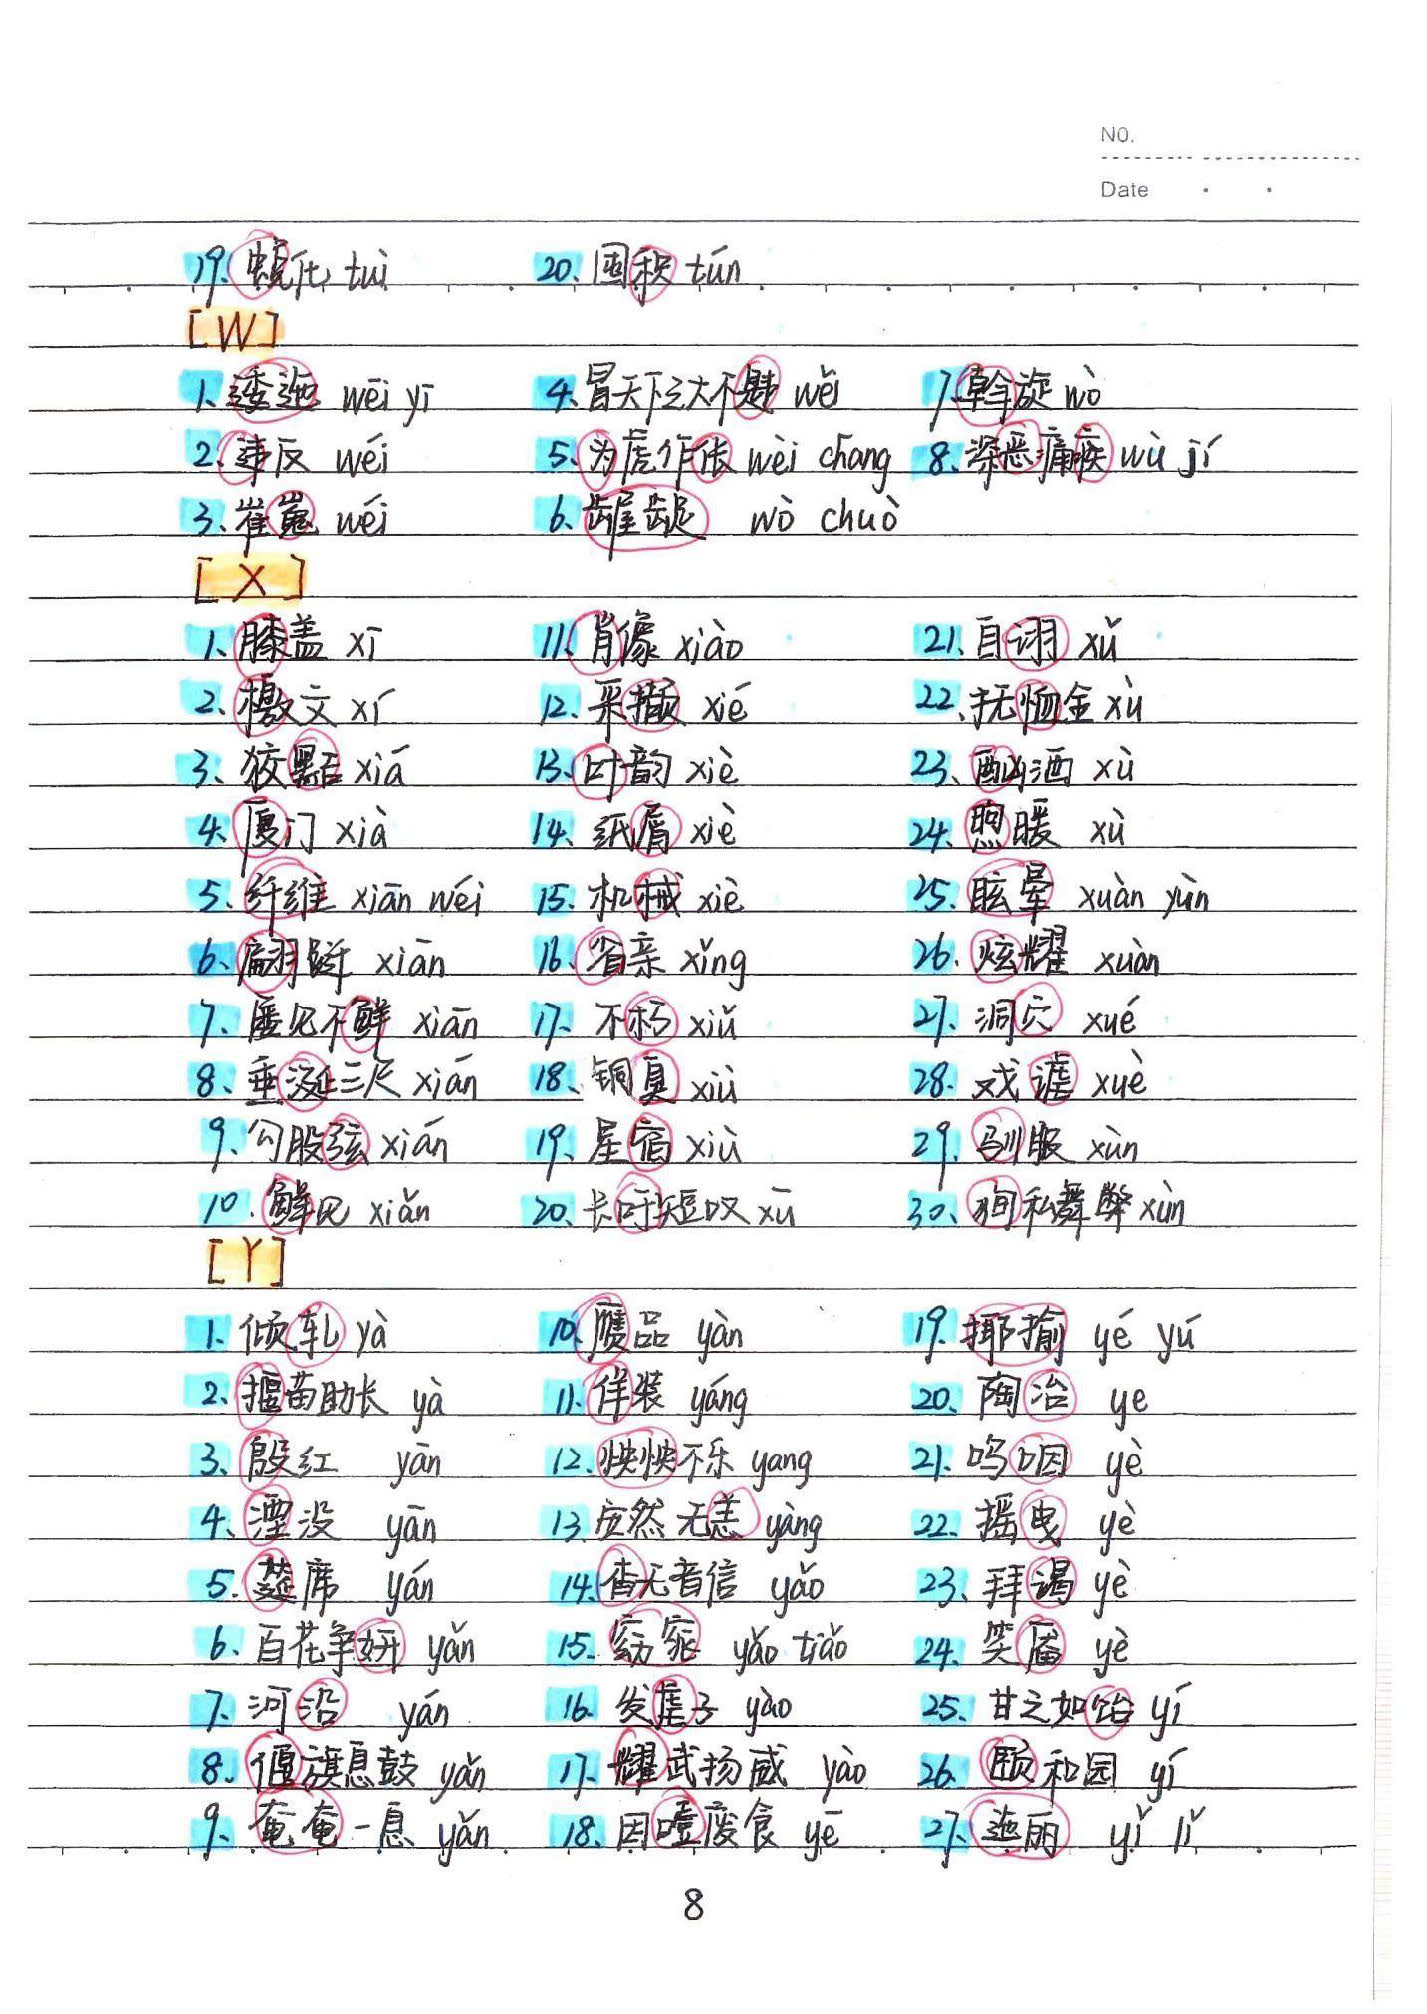 NO.
Date
19、蜕化 tuì 20、囤积 tún
[W]
1、逶迤 wēi yī 4、冒天下之大不韪 wěi 7、斡旋 wò
2、违反 wéi 5、为虎作伥 wèi chāng 8、深恶痛疾 wù jí
3、崔嵬 wéi 6、龌龊 wò chuò
[X]
1、膝盖 xī 11、肖像 xiào 21、自诩 xǔ
2、檄文 xí 12、采撷 xié 22、抚恤金 xù
3、狡黠 xiá 13、叶韵 xiè 23、酗酒 xù
4、厦门 xià 14、纸屑 xiè 24、煦暖 xù
5、纤维 xiān wéi 15、机械 xiè 25、眩晕 xuàn yùn
6、翩跹 xiān 16、省亲 xǐng 26、炫耀 xuàn
7、屡见不鲜 xiān 17、不朽 xiǔ 27、洞穴 xué
8、垂涎三尺 xián 18、铜臭 xiù 28、戏谑 xuè
9、勾股弦 xián 19、星宿 xiù 29、驯服 xùn
10、鲜见 xiǎn 20、长吁短叹 xū 30、徇私舞弊 xùn
[Y]
1、倾轧 yà 10、赝品 yàn 19、揶揄 yé yú
2、揠苗助长 yà 11、佯装 yáng 20、陶冶 ye
3、殷红 yān 12、怏怏不乐 yang 21、呜咽 yè
4、湮没 yān 13、安然无恙 yàng 22、摇曳 yè
5、筵席 yán 14、杳无音信 yǎo 23、拜谒 yè
6、百花争妍 yán 15、窈窕 yǎo tiǎo 24、笑靥 yè
7、河沿 yán 16、发疟子 yào 25、甘之如饴 yí
8、偃旗息鼓 yǎn 17、耀武扬威 yào 26、颐和园 yí
9、奄奄一息 yǎn 18、因噎废食 yē 27、迤丽 yǐ lǐ
8